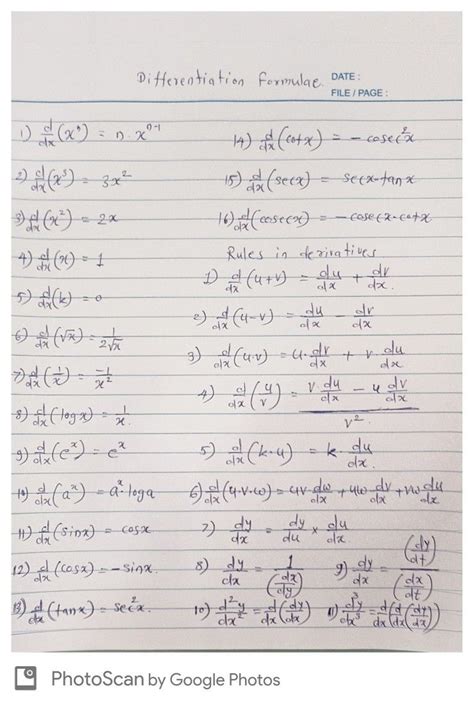 Differentiation Formulae
DATE :
FILE / PAGE :
1) d/dx (xⁿ) = n·xⁿ⁻¹
2) d/dx (x³) = 3x²
3) d/dx (x²) = 2x
4) d/dx (x) = 1
5) d/dx (k) = 0
6) d/dx (√x) = 1/2√x
7) d/dx (1/x) = -1/x²
8) d/dx (log x) = 1/x.
9) d/dx (eˣ) = eˣ
10) d/dx (aˣ) = aˣ·log a
11) d/dx (sinx) = cosx
12) d/dx (cosx) = -sinx.
13) d/dx (tanx) = sec²x.
14) d/dx (cotx) = -cosec²x
15) d/dx (secx) = secx·tanx
16) d/dx (cosecx) = -cosecx·cotx
Rules in derivatives
1) d/dx (u+v) = du/dx + dv/dx.
2) d/dx (u-v) = du/dx - dv/dx
3) d/dx (u·v) = u·dv/dx + v·du/dx
4) d/dx (u/v) = (v·du/dx - u dv/dx)/v².
5) d/dx (k·u) = k·du/dx.
6) d/dx (u·v·w) = uv·dw/dx + uw·dv/dx + vw du/dx
7) dy/dx = dy/du × du/dx
8) dy/dx = 1/(dx/dy)
9) dy/dx = (dy/dt)/(dx/dt)
10) d²y/dx² = d/dx (dy/dx)
11) d³y/dx³ = d/dx (d/dx (dy/dx))
PhotoScan by Google Photos